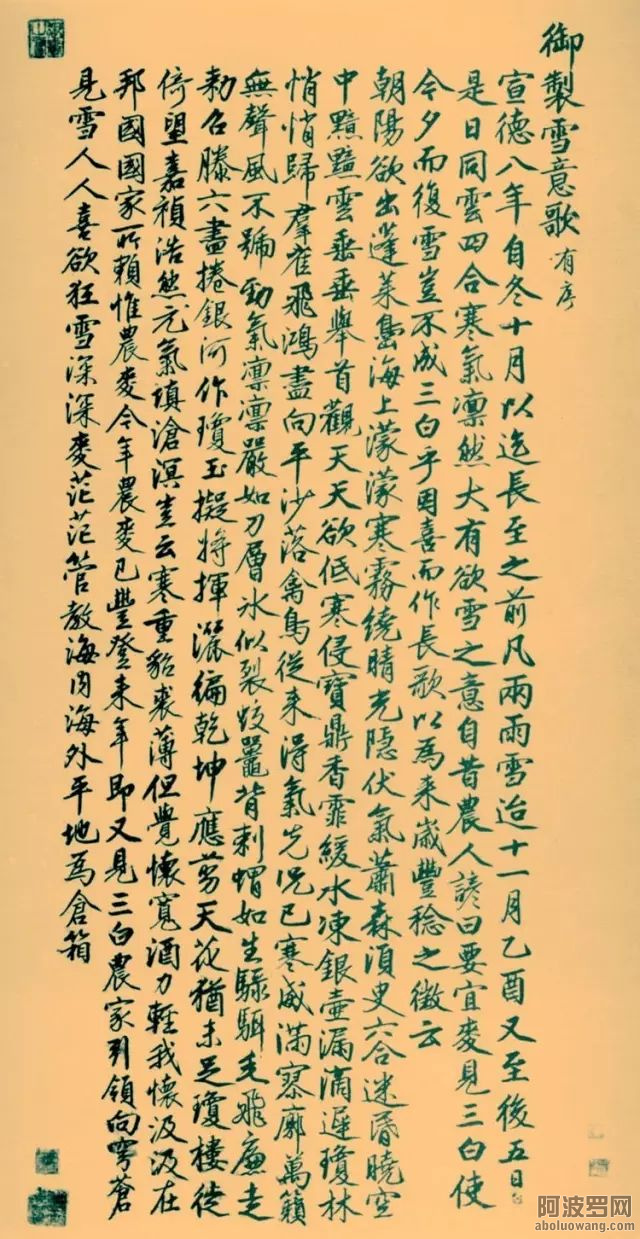 御製雪意歌 有序
宣德八年自冬十月以迄長至之前凡兩雨雪迨十一月乙酉又至後五日
是日同雲四合寒氣凜然大有欲雪之意自昔農人諺曰要宜麥見三白使
今夕而復雪豈不成三白乎因喜而作長歌以為來歲豐稔之徵云
朝陽欲出蓬萊島海上濛濛寒霧繞晴光隱伏氣蕭森須臾六合迷昏曉空
中黯黯雲垂垂舉首觀天天欲低寒侵寶鼎香霏緩水凍銀壺漏滴遲瓊林
悄悄歸羣雀飛鴻盡向平沙落禽鳥從來得氣先況已寒威滿寥廓萬籟
無聲風不號勁氣凜凜嚴如刀層冰似裂蛟鼉背刺蝟如生騄駬毛飛廉走
勅召滕六盡捲銀河作瓊玉擬將揮灑徧乾坤應剪天花猶未足瓊樓徙
倚望嘉禎浩然元氣填滄溟豈云寒重貂裘薄但覺懷寬酒力輕我懷汲汲在
邦國國家所賴惟農麥今年農麥已豐登來年即又見三白農家引領向穹蒼
見雪人人喜欲狂雪深深麥茫茫管教海內海外平地為倉箱
阿波罗网
aboluowang.com